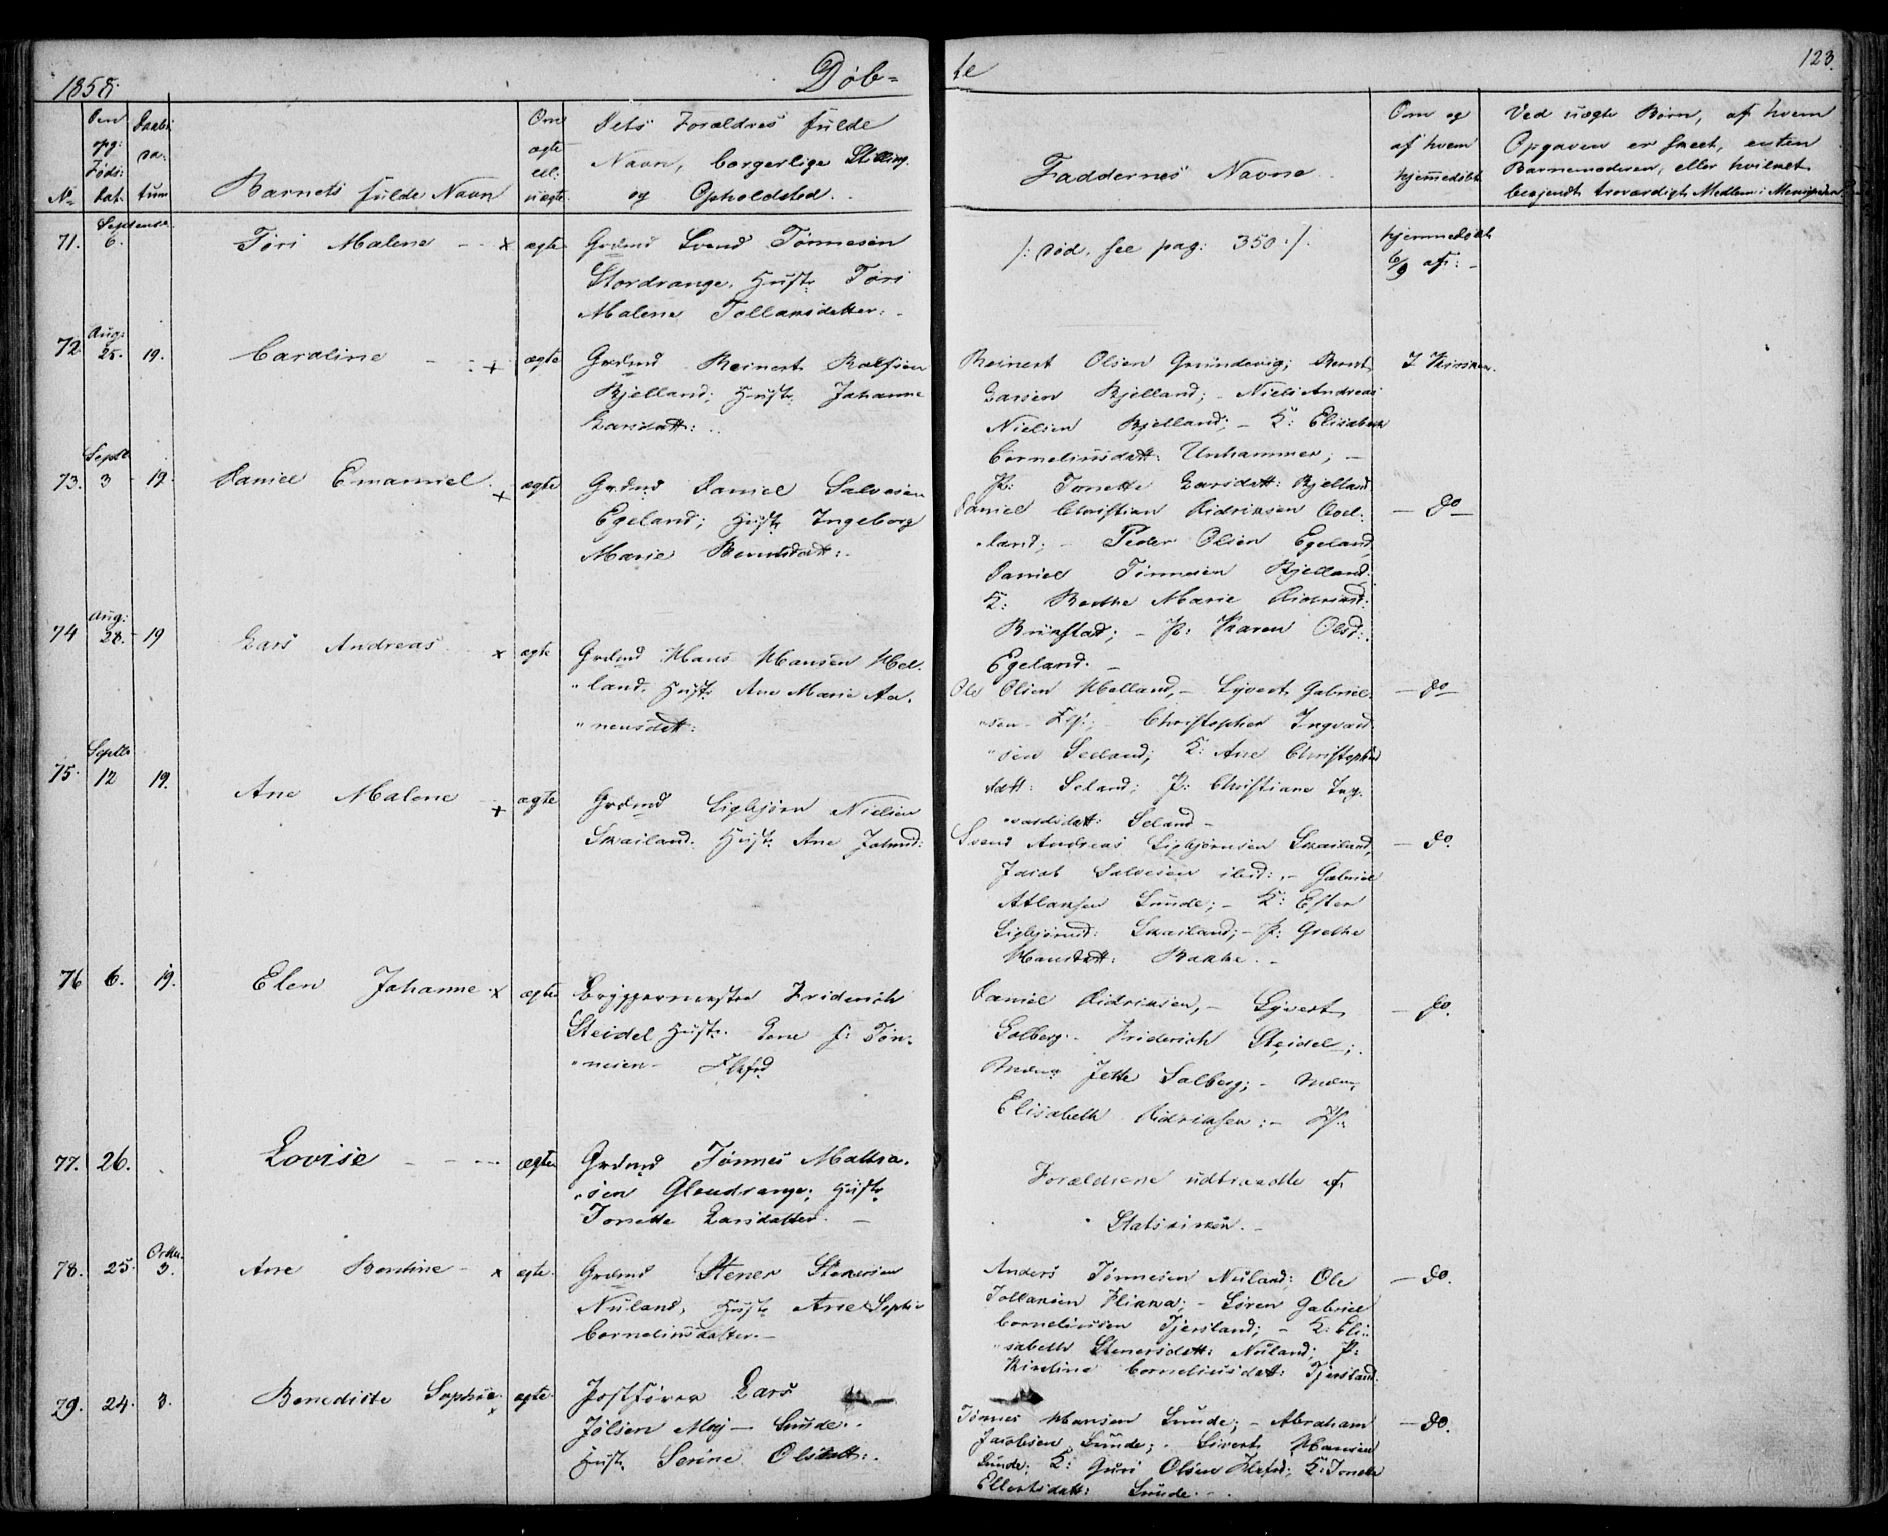 1858.
Døb-
te
123.
No
Den opg: Føds: dat.
Daabs datum
Barnets fulde Navn
Om ægte ell: uægte.
Dets Forældres fulde
Navn, borgerlige Stilling
og Opholdsted.
Faddernes Navne.
Om og
af hvem
hjemmedøbt
Ved uægte Børn, af hvem
Opgaven er skeet, enten
Barnemoderen, eller hvilket
besjendt troværdigt Medlem i Menigheden
71. Septemb: 6. Tøri Malene - x ægte Grdmd Svend Tønnesen
Stordrange. Hustr Tøri
Malene Tollaksdatter.
/: død, see pag: 350 :/.
hjemmedøbt
6/9 af: -
72. Aug: 25. 19. Caroline - x ægte Grdmd Reinert Rolfsen
Bjelland; Hustr Johanne
Larsdatt:
Reinert Olsen Grundevig; Bernt
Larsen Bjelland; - Niels Andreas
Nielsen Bjelland; - K: Elisabeth
Corneliusdatt: Urshammer; -
P: Tonette Larsdatt: Bjelland
I Kirken.
73. Septb 3 19. Daniel Emanuel. x ægte Grdmd Daniel Salvesen
Egeland; Hustr Ingeborg
Marie Berntsdatt:
Daniel Christian Didriksen
land; - Peder Olsen Egeland
Daniel Tønnesen Bjelland.
K: Berthe Marie Didriksd:
- P: Karen Olsd:
Egeland. -
- do -
74 Aug: 28. 19 Lars Andreas x ægte Grdmd Hans Hansen Hel-
"land. Hustr Ane Marie Aa-
"nensdatt:
Ole Olsen Helland, - Syvert Gabriel-
"sen - Christopher Ingvald-
"sen Seland; K: Ane Christophers
datt: Seland; P: Christiane Ing-
"valdsdatt: Seland -
- do -
75. Septb 12 19. Ane Malene x ægte Grdmd Sigbjørn Nielsen
Skailand. Hustr Ane Jakobsd:
Svend Andreas Sigbjørnsen Skailand,
Jacob Salvesen ibid: - Gabriel
Atlaksen Sunde; - K: Ester
Sigbjørnsd: Skailand; - P: Grethe
Hansdatt: Bakke. -
- do.
76 6. 19. Elen Johanne x ægte Bryggermester Friderich
Steidel Hustr. Lene f: Tøn-
"nesen - Flkfrd
Daniel Didriksen, - Syvert
Solberg - Friderich Steidel;
Mdme Jette Solberg; - Mdme
Elisabeth Didriksen: -
- do.
77. 26. Lovise - - - ægte Grdmd Tønnes Mathia-
"sen Glendrange; Hustr
Tonette Larsdatter. -
Forældrene udtraadte af
Statskirken. -
78. 25. Octbr. 3. Ane Bertine - x ægte. Grdmd Stener Stenersen
Nuland, Hustr Ane Sophie
Corneliusdatter. -
Anders Tønnesen Nuland; Ole
Tollaksen Flikka; - Søren Gabriel
Corneliussen Tjersland; - K: Eli-
"sabeth Stenersdatt: Nuland; P:
Kirstine Corneliusdatt: Tjersland.
- do.
79. 24. 3. Benedikte Sophie x ægte. Postfører Lars
Jølsen Moj - Sunde.
Hustr Serine Olsdatt:
Tønnes Hansen Sunde; - Abraham
Jacobsen Sunde; - Sivert Hansen
Sunde; K: Guri Olsen Flkfrd; K: Tonette
Ellertsdatt: Sunde. -
- do.